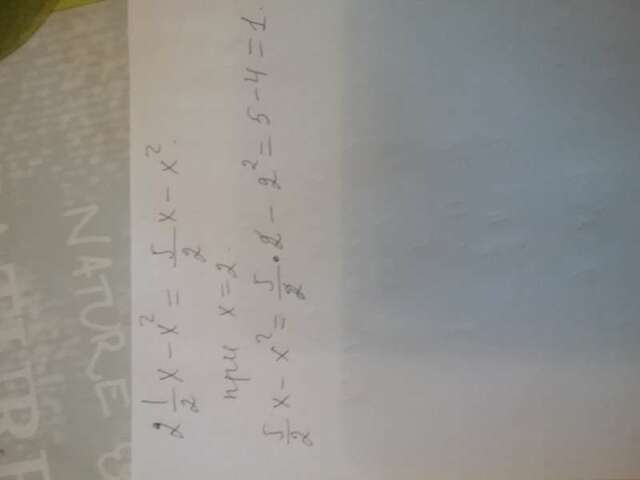 2 1/2 x - x² = 5/2 x - x².
при x = 2.
5/2 x - x² = 5/2 · 2 - 2² = 5 - 4 = 1.
NATURE